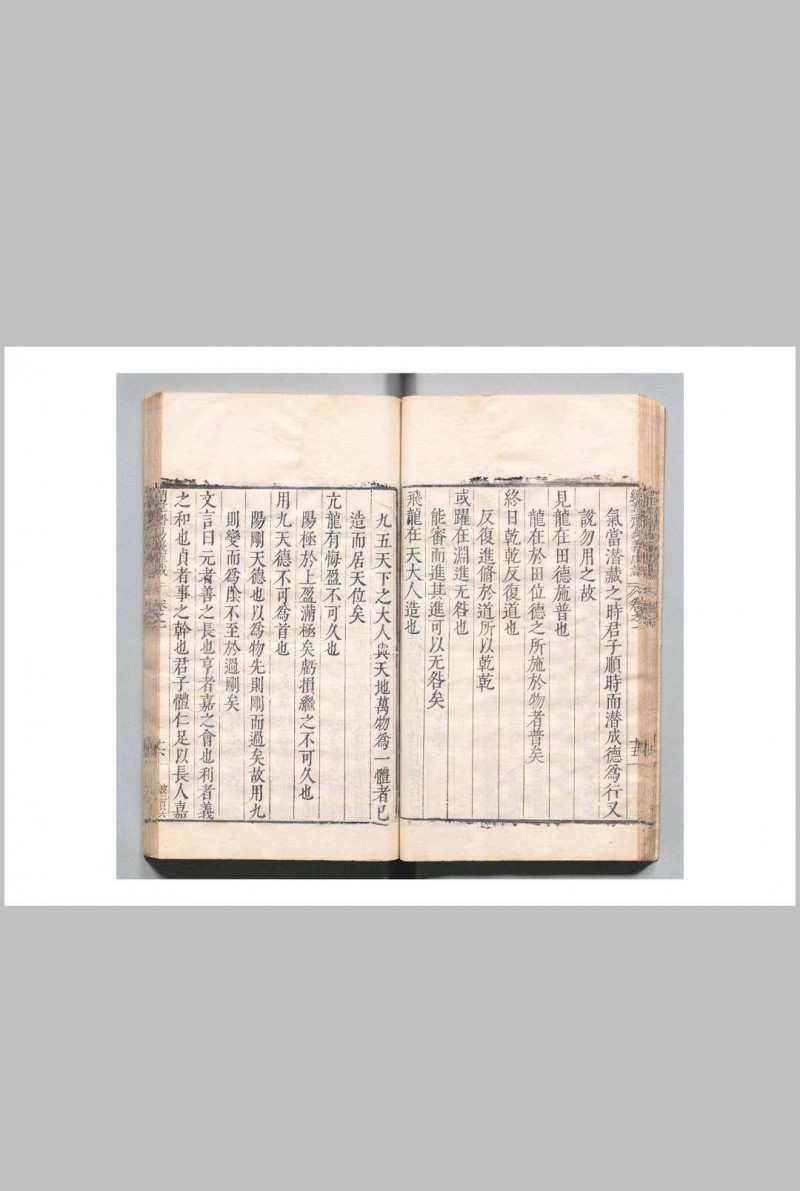 氣當潛藏之時君子順時而潛成德爲行又
說勿用之故
見龍在田德施普也
龍在於田位德之所施於物者普矣
終日乾乾反復道也
反復進脩於道所以乾乾
或躍在淵進无咎也
能審而進其進可以无咎矣
飛龍在天大人造也
九五天下之大人與天地萬物爲一體者已
造而居天位矣
亢龍有悔盈不可久也
陽極於上盈滿極矣虧損繼之不可久也
用九天德不可爲首也
陽剛天德也以爲物先則剛而過矣故用九
則變而爲陰不至於過剛矣
文言曰元者善之長也亨者嘉之會也利者義
之和也貞者事之幹也君子體仁足以長人嘉
卷之一
十六